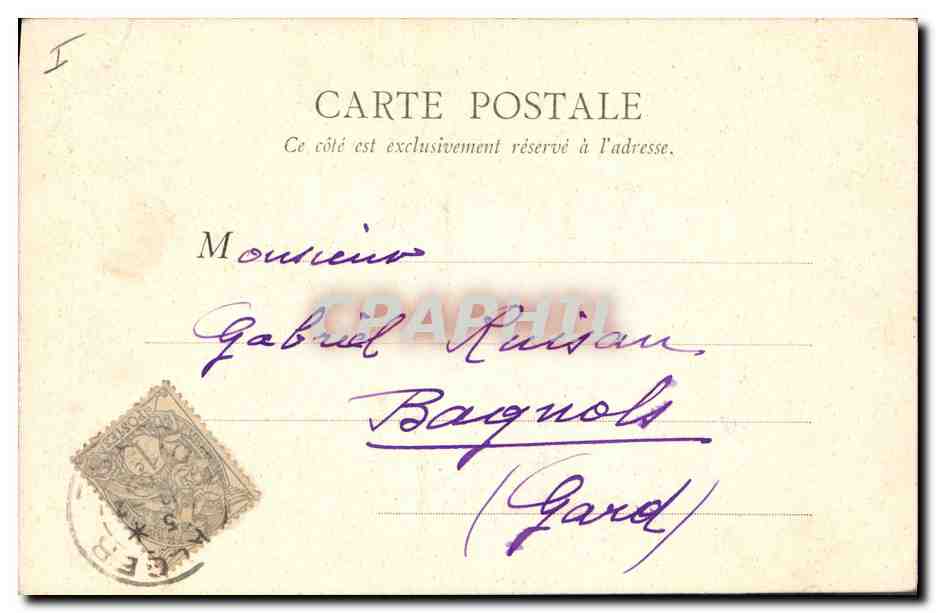 I
CARTE POSTALE
Ce côté est exclusivement réservé à l'adresse.
Monsieur
CPAPHIL
Gabriel Ruisan
Bagnols
(Gard)